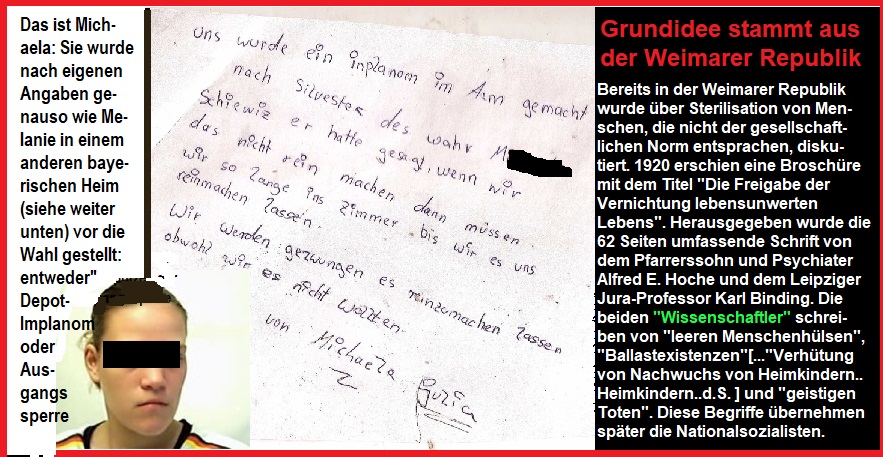 Das ist Mich-
aela: Sie wurde
nach eigenen
Angaben ge-
nauso wie Me-
lanie in einem
anderen baye-
rischen Heim
(siehe weiter
unten) vor die
Wahl gestellt:
entweder"
Depot-
Implanom
oder
Aus-
gangs
sperre
uns wurde ein inplanom im Arm gemacht
nach Silvester des wahr M
Schiewiz er hatte gesagt, wenn wir
das nicht rein machen dann müssen
wir so lange ins Zimmer bis wir es uns
reinmachen lassen.
Wir werden gezwungen es reinzumachen lassen
obwohl wir es nicht wollten.
von Michaela
Grundidee stammt aus
der Weimarer Republik
Bereits in der Weimarer Republik
wurde über Sterilisation von Men-
schen, die nicht der gesellschaft-
lichen Norm entsprachen, disku-
tiert. 1920 erschien eine Broschüre
mit dem Titel "Die Freigabe der
Vernichtung lebensunwerten
Lebens". Herausgegeben wurde die
62 Seiten umfassende Schrift von
dem Pfarrerssohn und Psychiater
Alfred E. Hoche und dem Leipziger
Jura-Professor Karl Binding. Die
beiden "Wissenschaftler" schrei-
ben von "leeren Menschenhülsen",
"Ballastexistenzen"[..."Verhütung
von Nachwuchs von Heimkindern..
Heimkindern..d.S. ] und "geistigen
Toten". Diese Begriffe übernehmen
später die Nationalsozialisten.